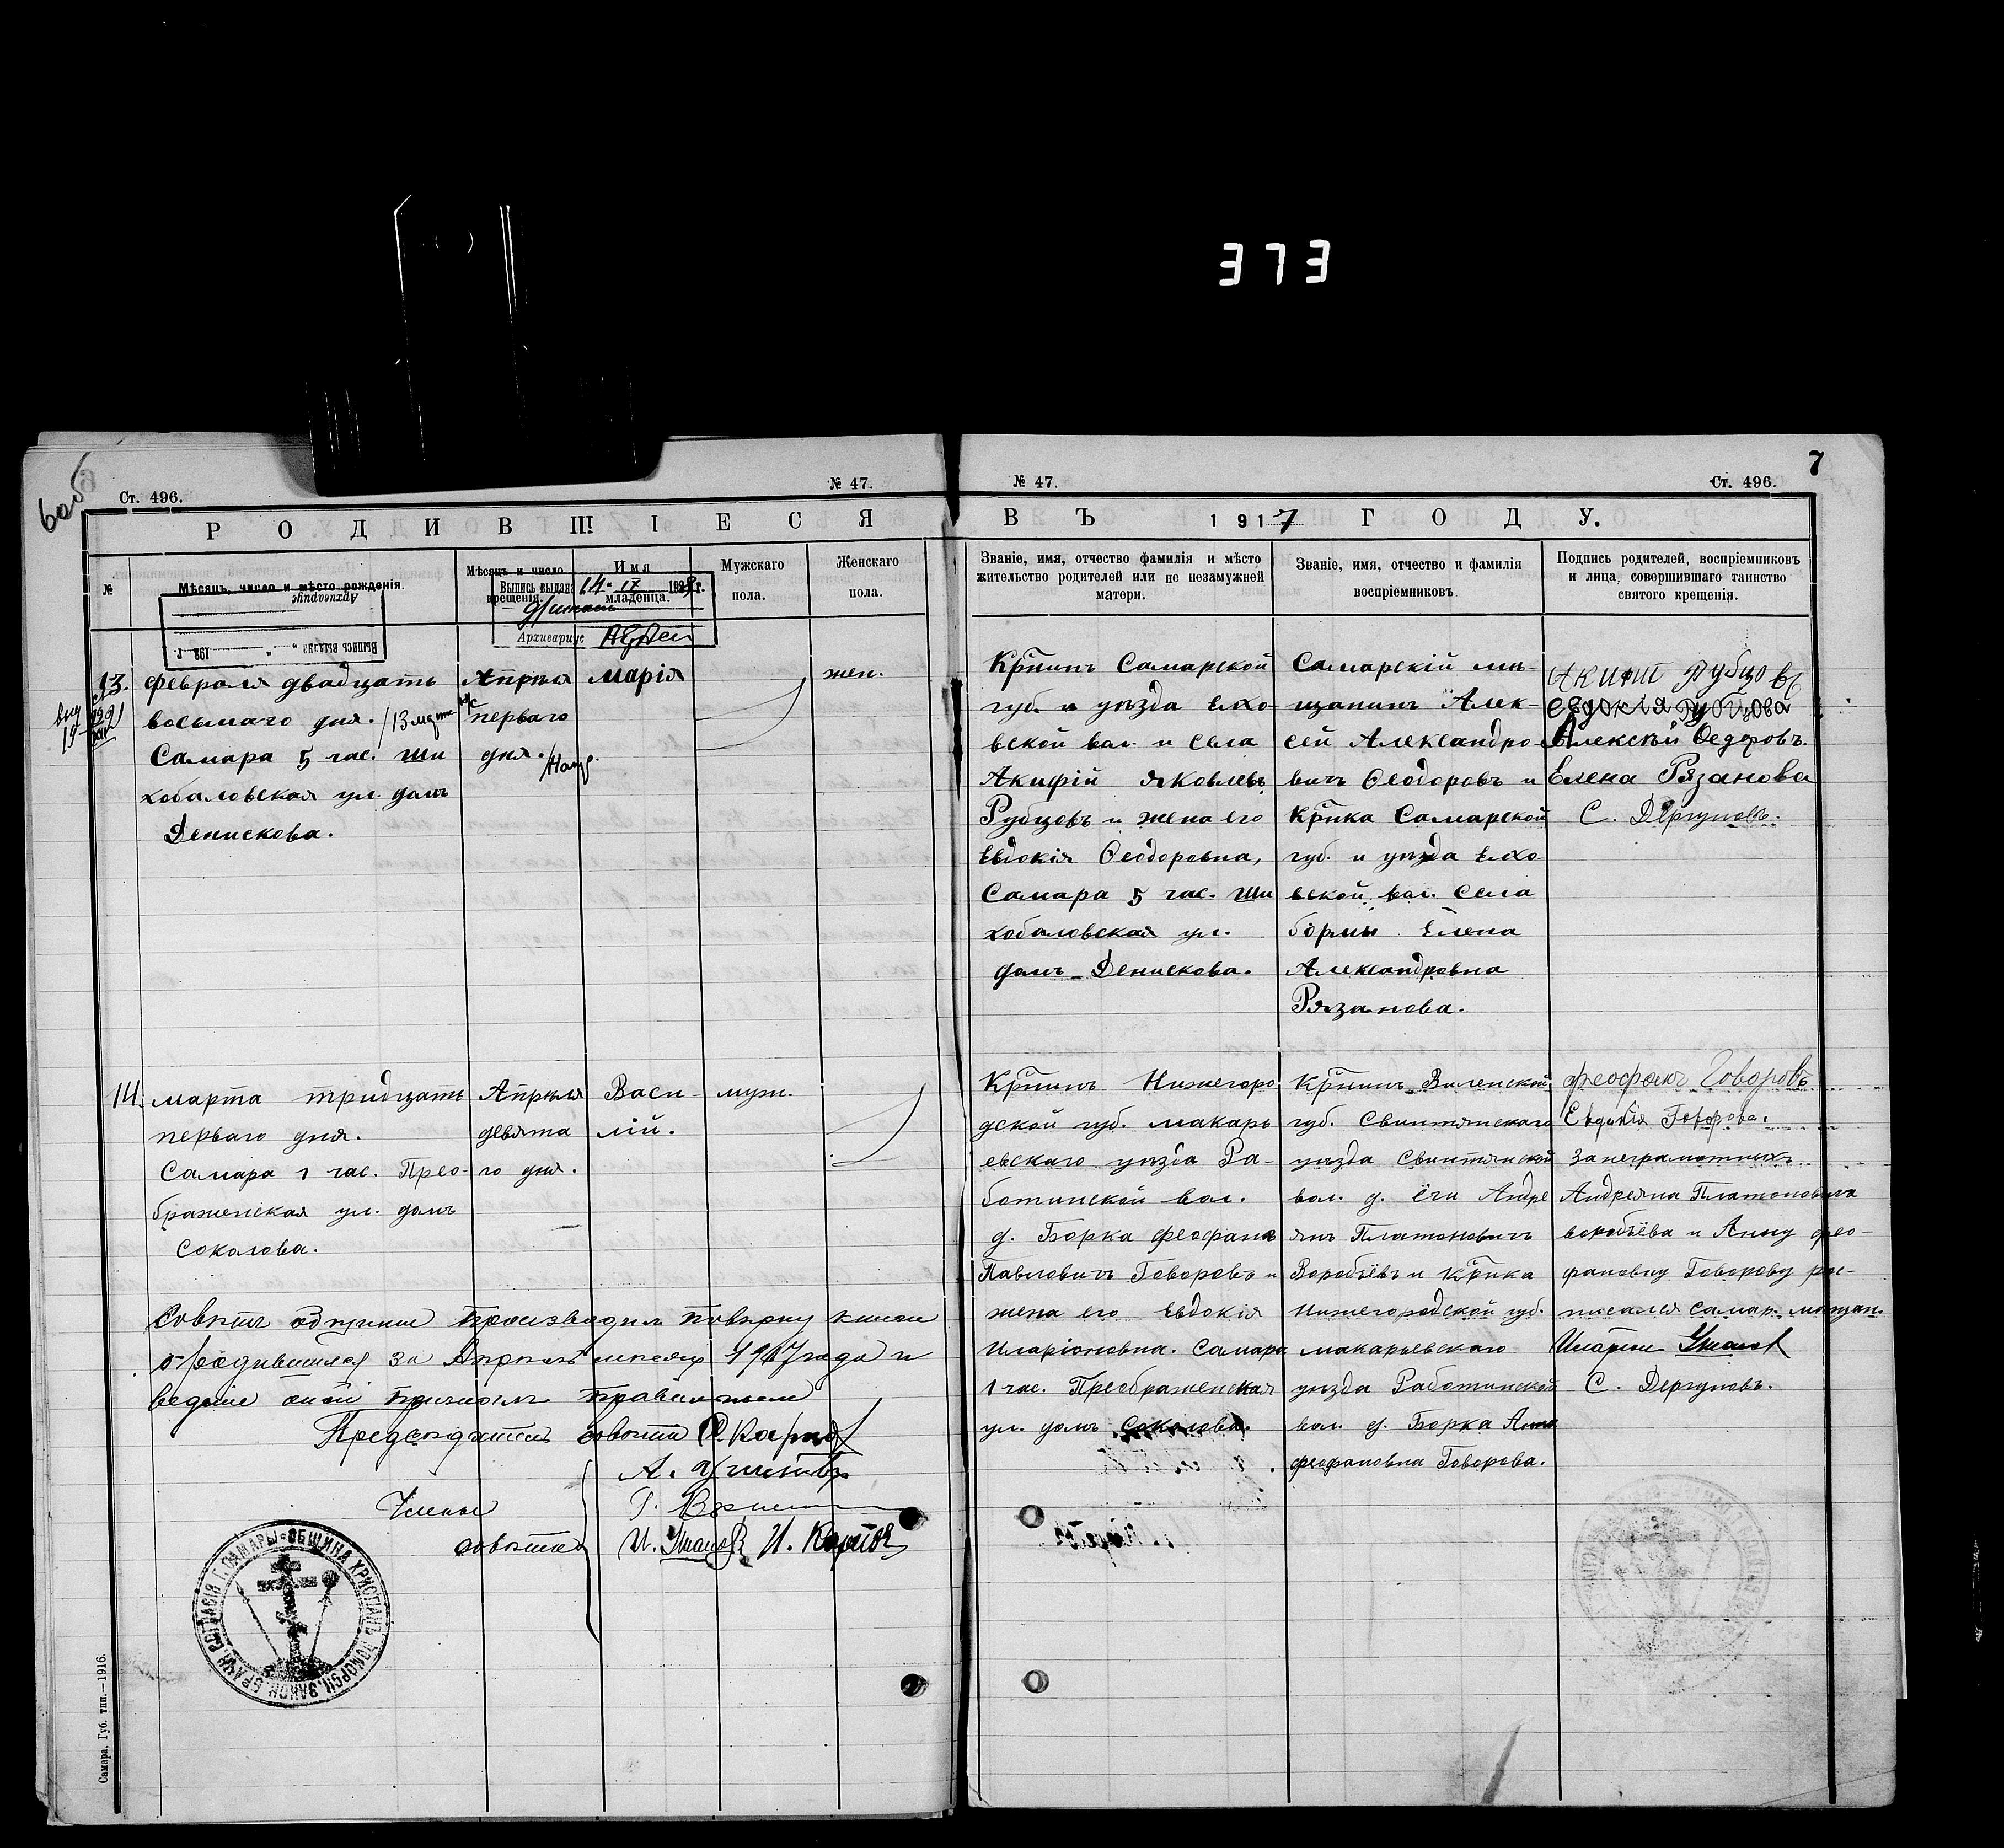 373
6 об
7
Ст. 496.
№ 47.
№ 47.
Ст. 496.
РОДИВШІЕСЯ
ВЪ 1917 ГОДУ.
№
Мѣсяцъ, число и мѣсто рожденія.
Мѣсяцъ и число крещенія.
Имя младенца.
Мужскаго пола.
Женскаго пола.
Званіе, имя, отчество фамилія и мѣсто
жительство родителей или не незамужней
матери.
Званіе, имя, отчество и фамилія
воспріемниковъ.
Подпись родителей, воспріемниковъ
и лица, совершившаго таинство
святого крещенія.
Выпись выдана
192 г.
Архивариус
Выпись выдана 14-IX 192 г.
Архивариус
13.
февраля двадцать
восьмаго дня.
Самара 5 час. Ши
хобаловская ул. домъ
Денискова.
Апрѣля
перваго
дня.
марія
жен.
Кр̃нинъ Самарской
губ. и уѣзда Елхо
вской вол. и села
Акифій Яковлевъ
Рубцовъ и жена его
Евдокія Ѳеодоровна,
Самара 5 час. Ши
хобаловская ул.
домъ Денискова.
Самарскій мѣ-
щанинъ Алек-
сѣй Александро-
вичъ Ѳеодоровъ и
Кр̃нка Самарской
губ. и уѣзда Елхо
вской вол. Села
бормы Елена
Александровна
Рязанова.
Акифи Рубцовъ
евдокия Рубцова
Алексѣй Ѳедоровъ.
Елена Рязанова
С. Дергуновъ.
14.
марта тридцать
перваго дня.
Самара 1 час. Прео-
браженская ул. домъ
Соколова.
Апрѣля
девята
го дня.
Васи-
лій.
муж.
Кр̃нинъ Нижегоро
дской губ. макарь
евскаго уѣзда Ра-
ботинской вол.
д. Борка феофанъ
Павловичъ Говоровъ и
жена его Евдокія
Иларіоновна. Самара
1 час. Преображенская
ул. домъ Соколова.
Кр̃нинъ Виленской
губ. Свинтянскаго
уѣзда Свинтянской
вол. д. Андре
янъ Платоновичъ
Воробьёвъ и кр̃нка
Нижегородской губ.
макарьевскаго
уѣзда Работинской
вол. д. Борка Анна
феофановна Говорова.
феофанъ Говоровъ
Евдокія Говорова.
За неграмотныхъ
Андреяна Платоновича
воробьёва и Анну фео-
фановну Говорову рос-
писался самар. мещан.
Иларіон Ушанов
С. Дергуновъ.
Совѣтъ общины производил повѣрку книги
о родившихся за Апрѣль мѣсяцъ 1917 года и
ведѣніе оной призналъ правильнымъ
Предсѣдатель совѣта
Члены
совѣта
И. Ушанов
БРАЧН. СОГЛАСІЯ Г. САМАРЫ ОБЩИНА ХРИСТІАНЪ ПОМОРСК. ЗАКОН.
Самара, Губ. тип.—1916.